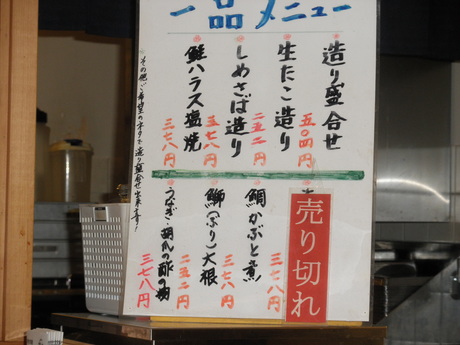 一品メニュー
造り盛合せ
五〇四円
生たこ造り
二五二円
しめさば造り
三七八円
鮭ハラス塩焼
三七八円
売り切れ
鯛かぶと煮
三七八円
鰤(ぶり)大根
三七八円
うなぎ・胡瓜の酢の物
三七八円
その他ご希望のネタで造り盛合せ出来ます!